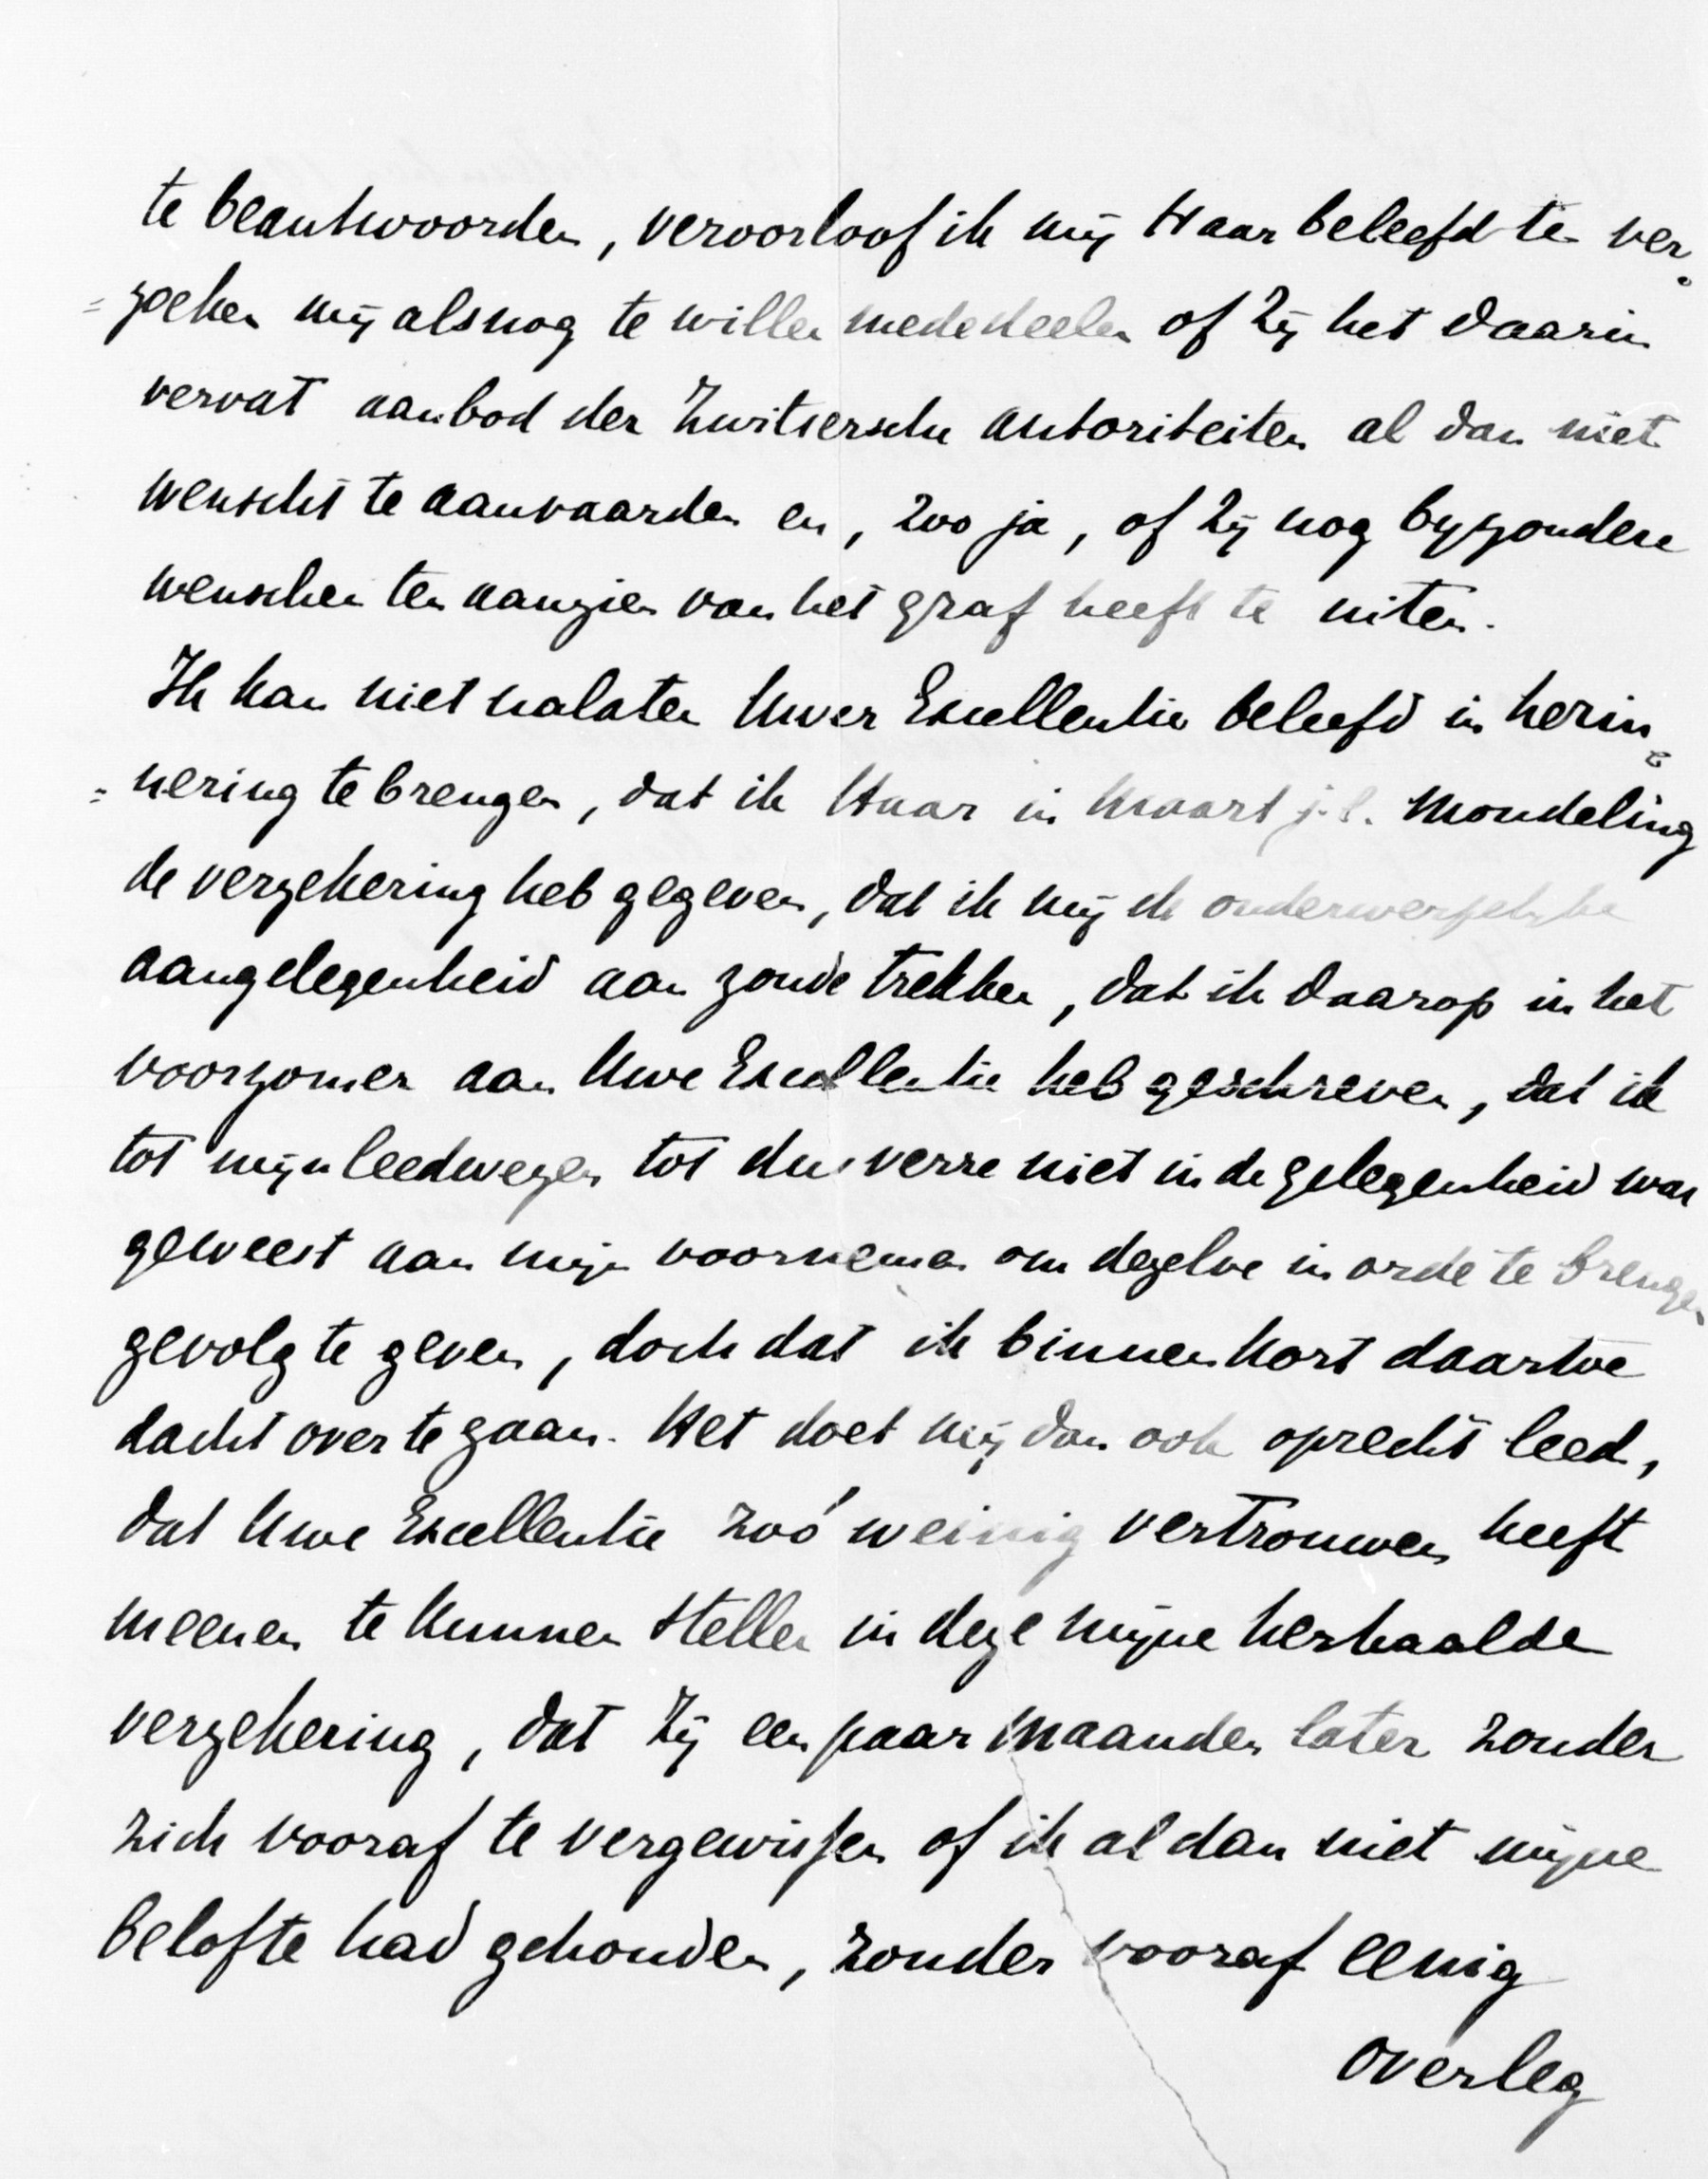 te beantwoorden, veroorloof ik mij Haar beleefd te ver=
=zoeken mij alsnog te willen mededeelen of Zij het daarin
vervat aanbod der Zwitsersche autoriteiten al dan niet
wenscht te aanvaarden en, zoo ja, of Zij nog byzondere
wenschen ten aanzien van het graf heeft te uiten.
Ik kan niet nalaten Uwer Excellentie beleefd in herin=
=nering te brengen, dat ik Haar in Maart j.l. mondeling
de verzekering heb gegeven, dat ik mij de onderwerpelijke
aangelegenheid aan zoude trekken, dat ik daarop in het
voorzomer aan Uwe Excellentie heb geschreven, dat ik
tot mijn leedwezen tot dusverre niet in de gelegenheid was
geweest aan mijn voornemen om dezelve in orde te brengen
gevolg te geven, doch dat ik binnenkort daartoe
dacht over te gaan. Het doet mij dan ook oprecht leed,
dat Uwe Excellentie zoó weinig vertrouwen heeft
meenen te kunnen stellen in deze mijne herhaalde
verzekering, dat Zij een paar maanden later zonder
zich vooraf te vergewissen of ik al dan niet mijne
belofte had gehouden, zonder vooraf eenig
overleg